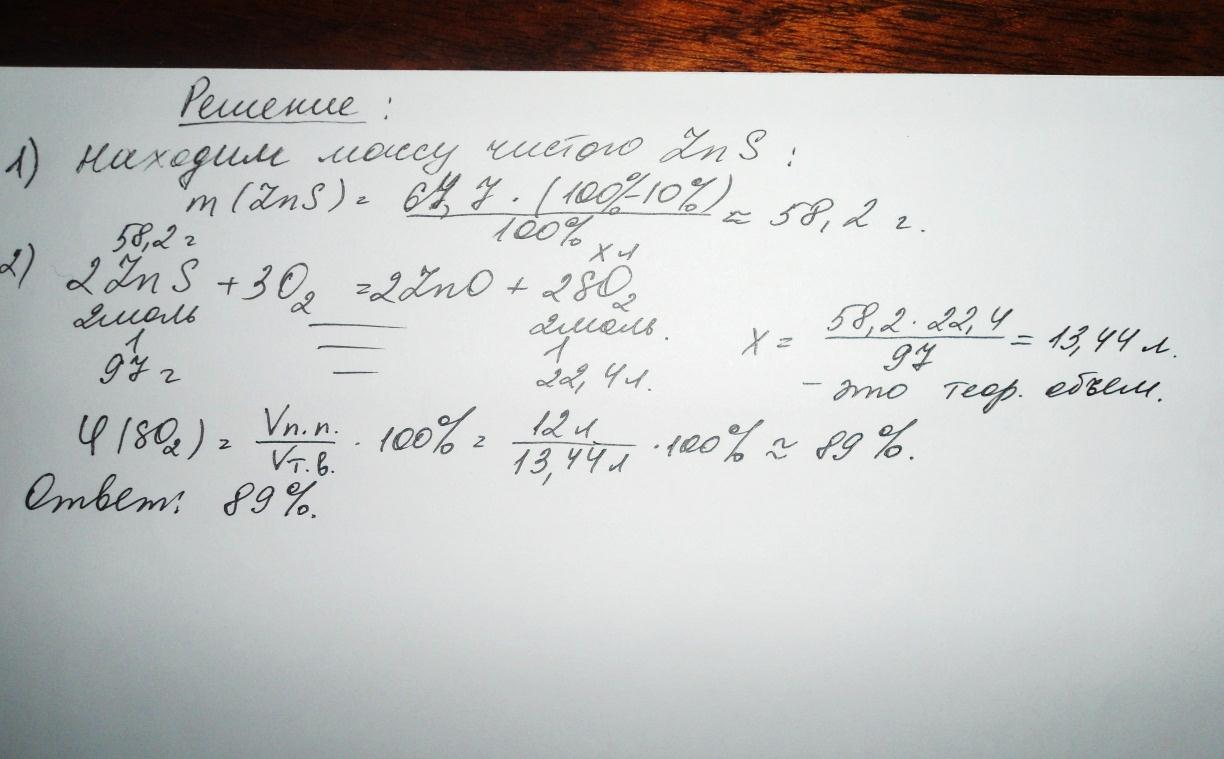 Решение:
1) Находим массу чистого ZnS:
m(ZnS) = 64,7 · (100%-10%) / 100% ≈ 58,2 г.
58,2 г x л
2) 2ZnS + 3O2 = 2ZnO + 2SO2
2моль 2моль.
1 1
97 г 22,4л.
X = 58,2 · 22,4 / 97 = 13,44 л.
- это теор. объем.
φ(SO2) = Vп.п. / Vт.в. · 100% = 12л / 13,44л · 100% ≈ 89%.
Ответ: 89%.